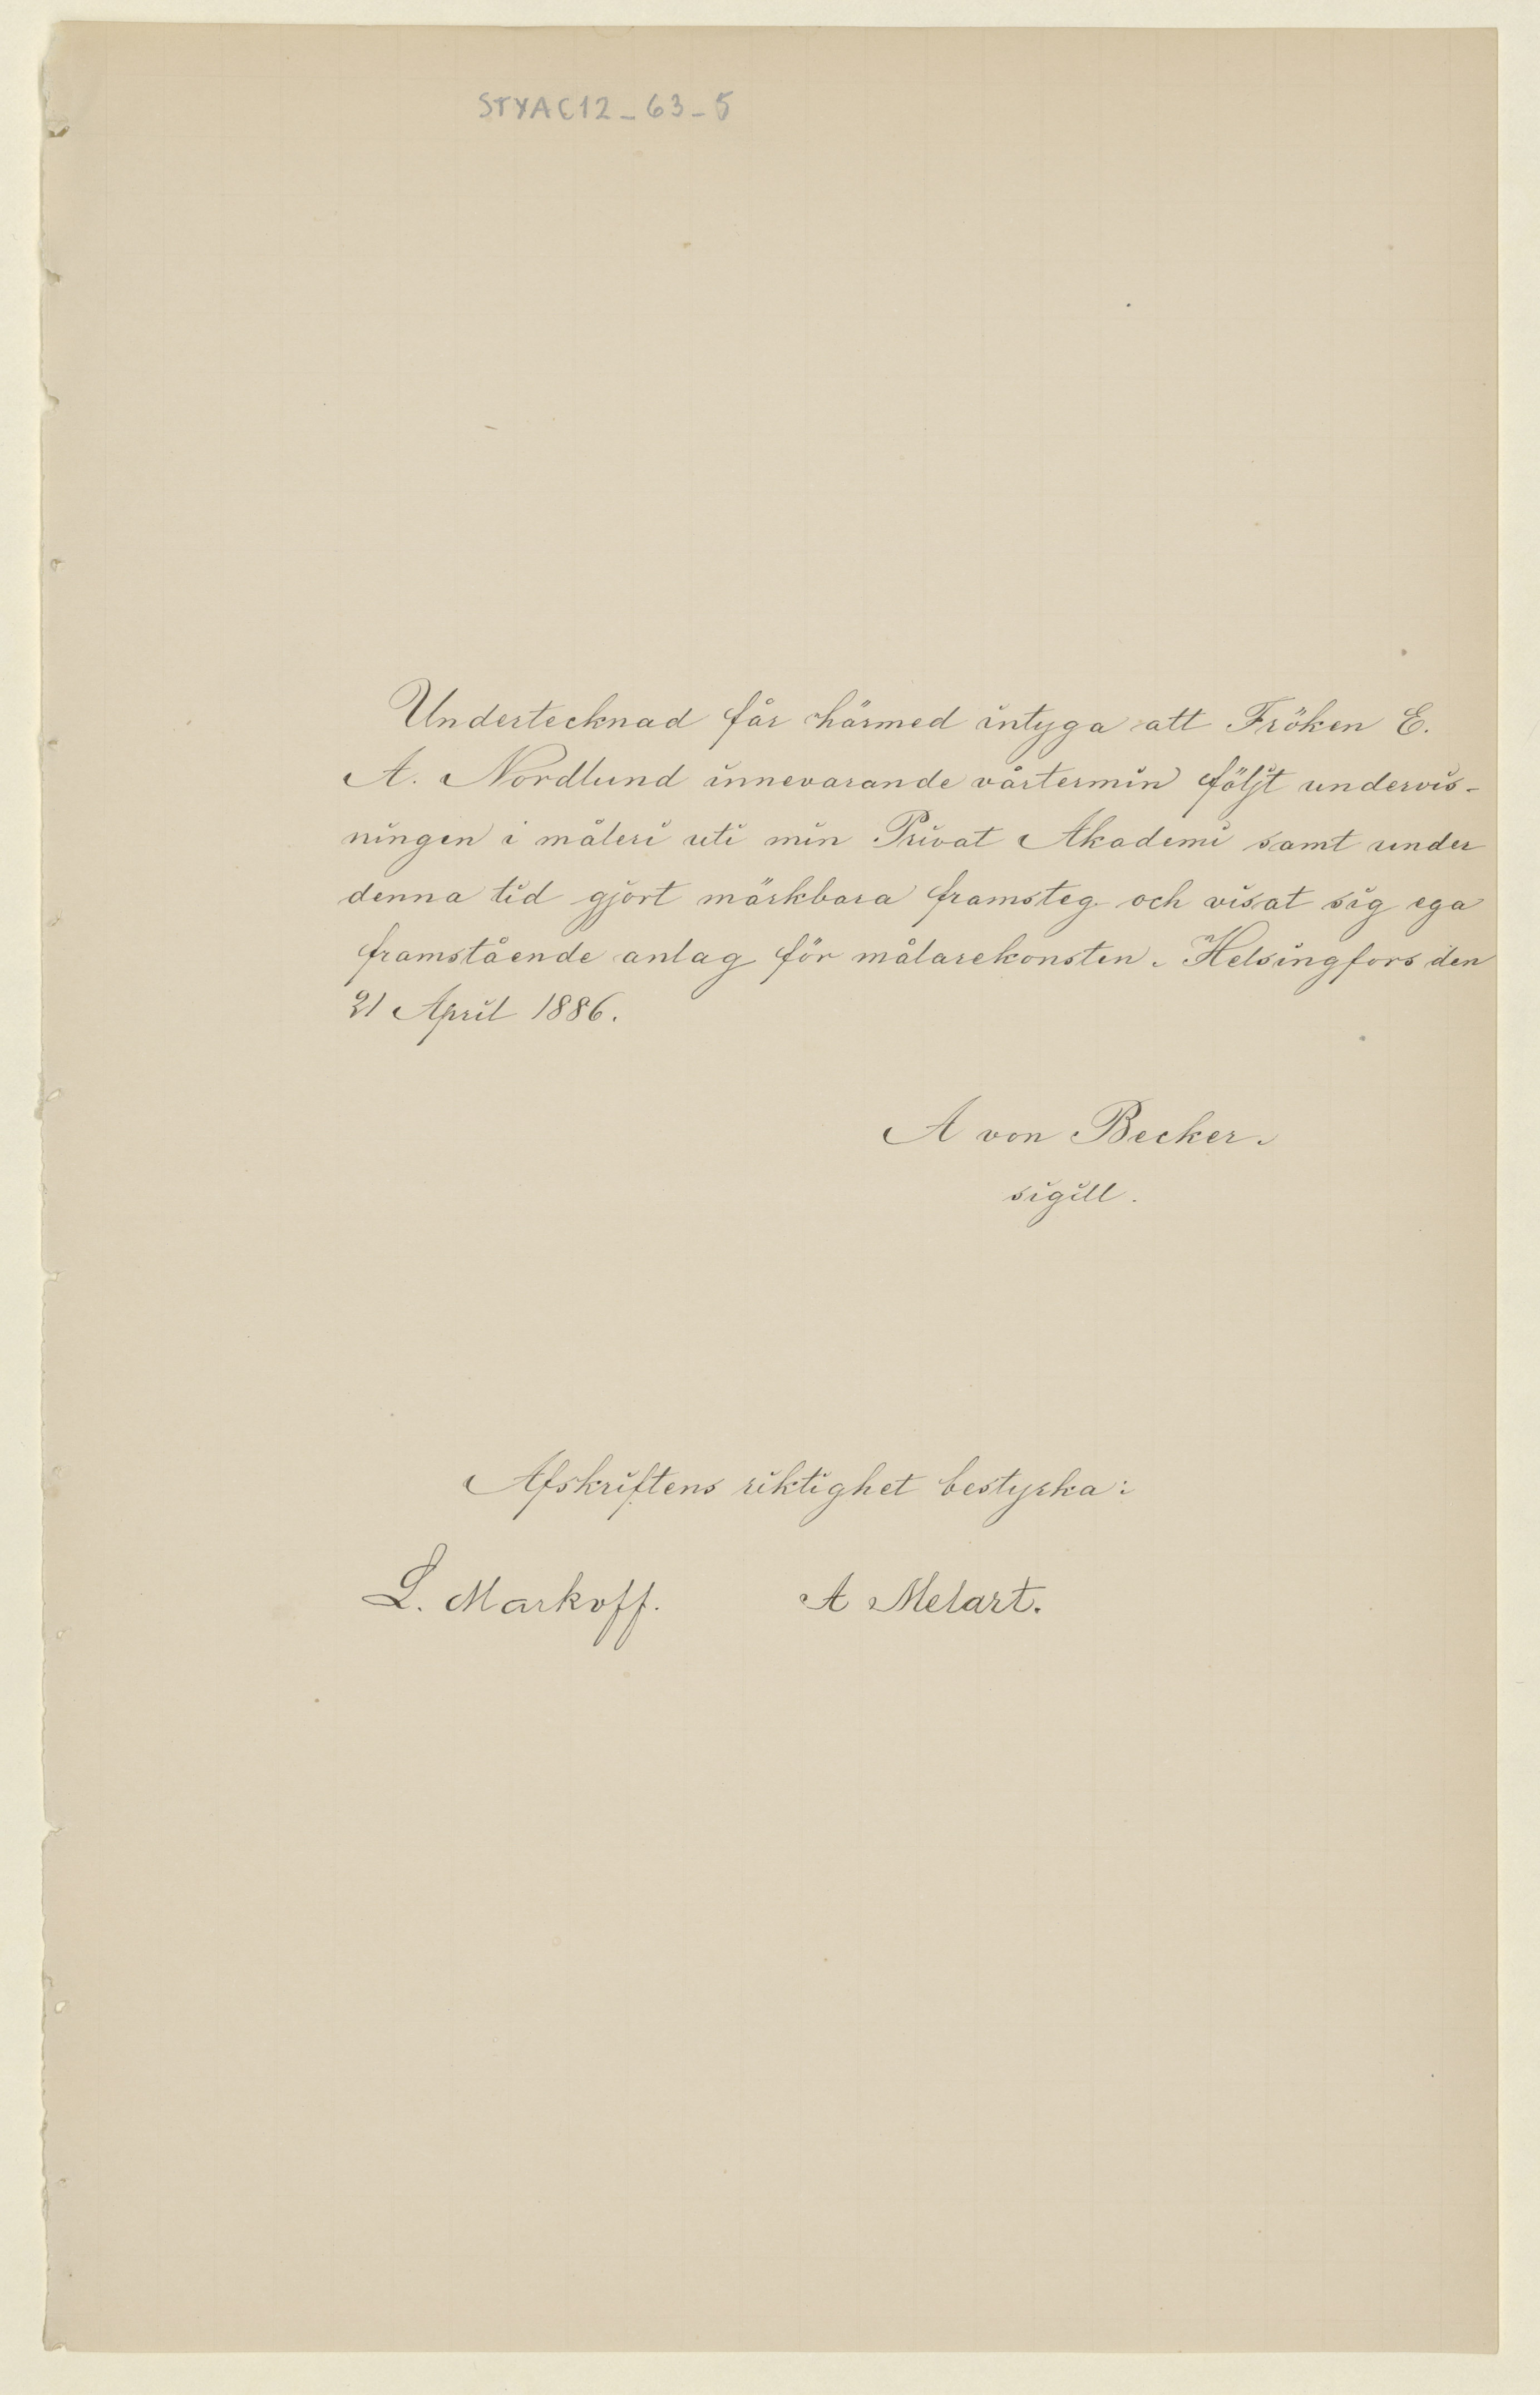 STYAC12_63_5
Undertecknad får härmed intyga att Fröken E.
A. Nordlund innevarande vårtermin följt undervis-
ningen i måleri uti min Privat Akademi samt under
denna tid gjort märkbara framsteg och visat sig ega
framstående anlag för målarekonsten. Helsingfors den
21 April 1886.
A von Becker.
sigill.
Afskriftens riktighet bestyrka:
L. Markoff. A Melart.